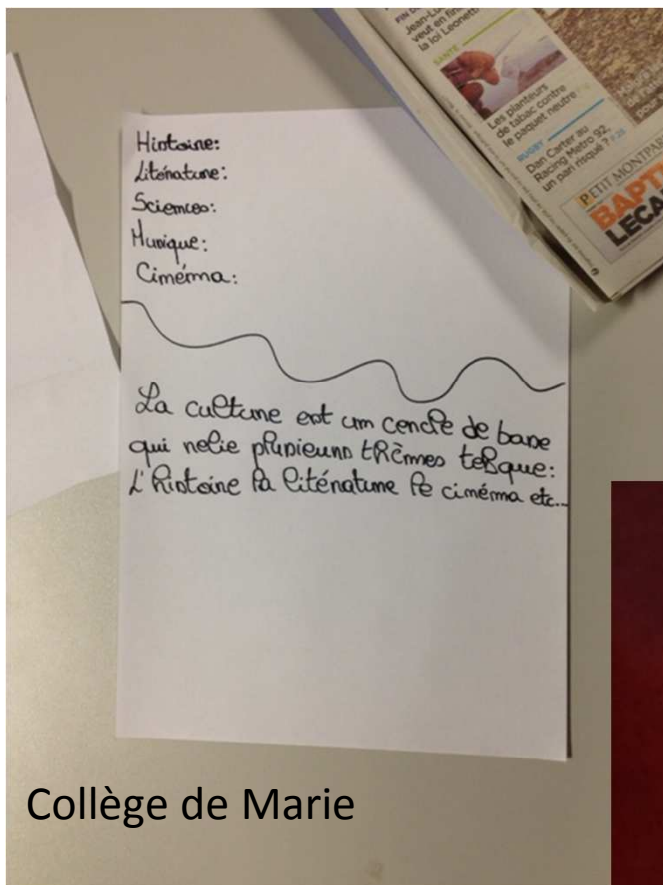 Histoire:
Litérature:
Sciences:
Musique:
Cinéma:
La culture est un cercle de base
qui relie plusieurs thèmes telsque:
L'histoire la litérature le cinéma etc...
FIN DE
Jean-Lu
veut en fin
la loi Leonetti
SANTÉ
Les planteurs
de tabac contre
le paquet neutre
RUGBY
Dan Carter au
Racing Metro 92,
un pari risqué ? P.25
PETIT MONTPAR
BAPTI
LECA
Collège de Marie